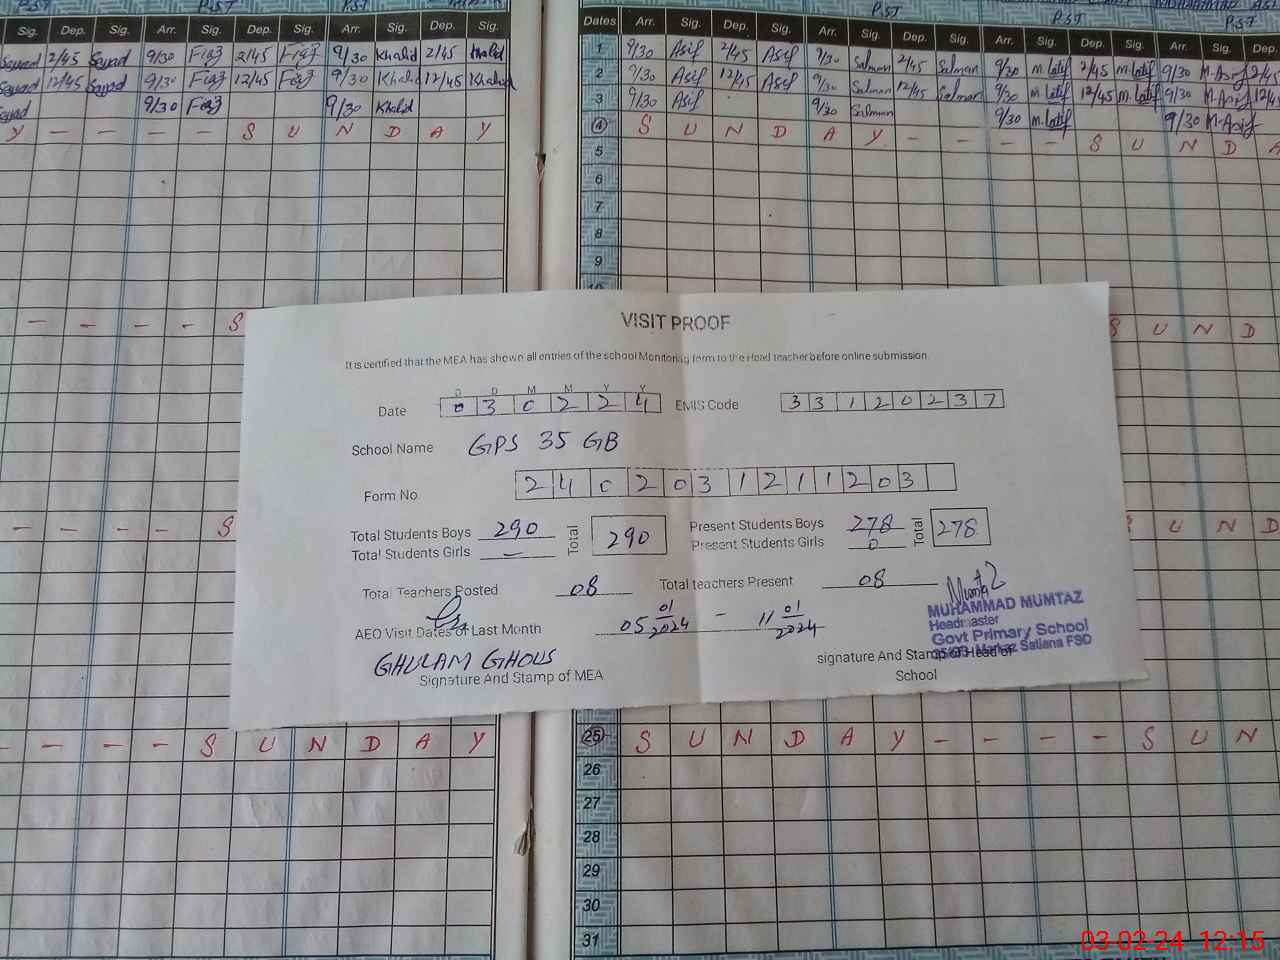 PST PST PST
Sig. Dep. Sig. Arr. Sig. Dep. Sig. Arr. Sig. Dep. Sig.
Sayyad 2/45 Sayyad 9/30 Fiaz 2/45 Fiaz 9/30 Khalid 2/45 Khalid
Sayyad 12/45 Sayyad 9/30 Fiaz 12/45 Fiaz 9/30 Khalid 12/45 Khalid
Sayyad 9/30 Fiaz 9/30 Khalid
Y - - - - S U N D A Y
- - - - S
- - - S
- - - - S U N D A Y
PST PST PST
Dates Arr. Sig. Dep. Sig. Arr. Sig. Dep. Sig. Arr. Sig. Dep. Sig. Arr. Sig. Dep.
1 9/30 Asif 2/45 Asif 9/30 Salman 2/45 Salman 9/30 M.Latif 2/45 M.Latif 9/30 M.Asif 2/45
2 9/30 Asif 12/45 Asif 9/30 Salman 12/45 Salman 9/30 M.Latif 12/45 M.Latif 9/30 M.Asif 12/45
3 9/30 Asif 9/30 Salman 9/30 M.Latif 9/30 M.Asif
4 S U N D A Y - - - - S U N D A
5
6
7
8
9
10
S U N D
U N D
VISIT PROOF
It is certified that the MEA has shown all entries of the school Monitoring form to the Head teacher before online submission.
D D M M Y Y
Date 0 3 0 2 2 4 EMIS Code 3 3 1 2 0 2 3 7
School Name GPS 35 GB
Form No 2 4 0 2 0 3 1 2 1 1 2 0 3
Total Students Boys 290 Total 290 Present Students Boys 278 Total 278
Total Students Girls — Present Students Girls 0
Total Teachers Posted 08 Total teachers Present 08
AEO Visit Dates of Last Month 05 01/2024 - 11 01/2024
Mumtaz
MUHAMMAD MUMTAZ
Headmaster
Govt Primary School
35/GB Markaz Satiana FSD
GHULAM GHOUS
Signature And Stamp of MEA
signature And Stamp of Head of
School
25 S U N D A Y - - - - S U N
26
27
28
29
30
31
03-02-24 12:15